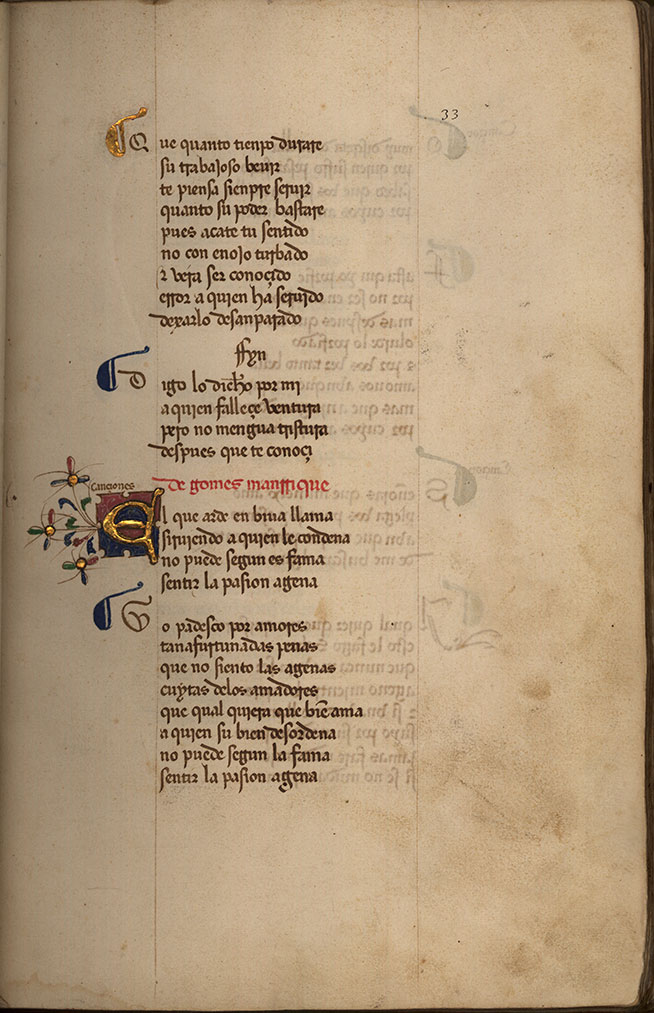 33
Que quanto tienpo durare
su trabajoso beuir
te piensa sienpre seruir
quanto su poder bastare
pues acate tu sentido
no con enojo turbado
z vera ser conoçido
error a quien ha seruido
dexarlo desanparado
ffyn
Digo lo dicho por mi
a quien falleçe ventura
pero no mengua tristura
despues que te conoçi
Canciones De gomes manrrique
El que arde en biua llama
siruiendo a quien le condena
no puede segun es fama
sentir la pasion agena
Yo padesco por amores
tan afurtunadas penas
que no siento las agenas
cuytas delos amadores
que qual quiera que biē ama
a quien su bien desordena
no puede segun la fama
sentir la pasion agena